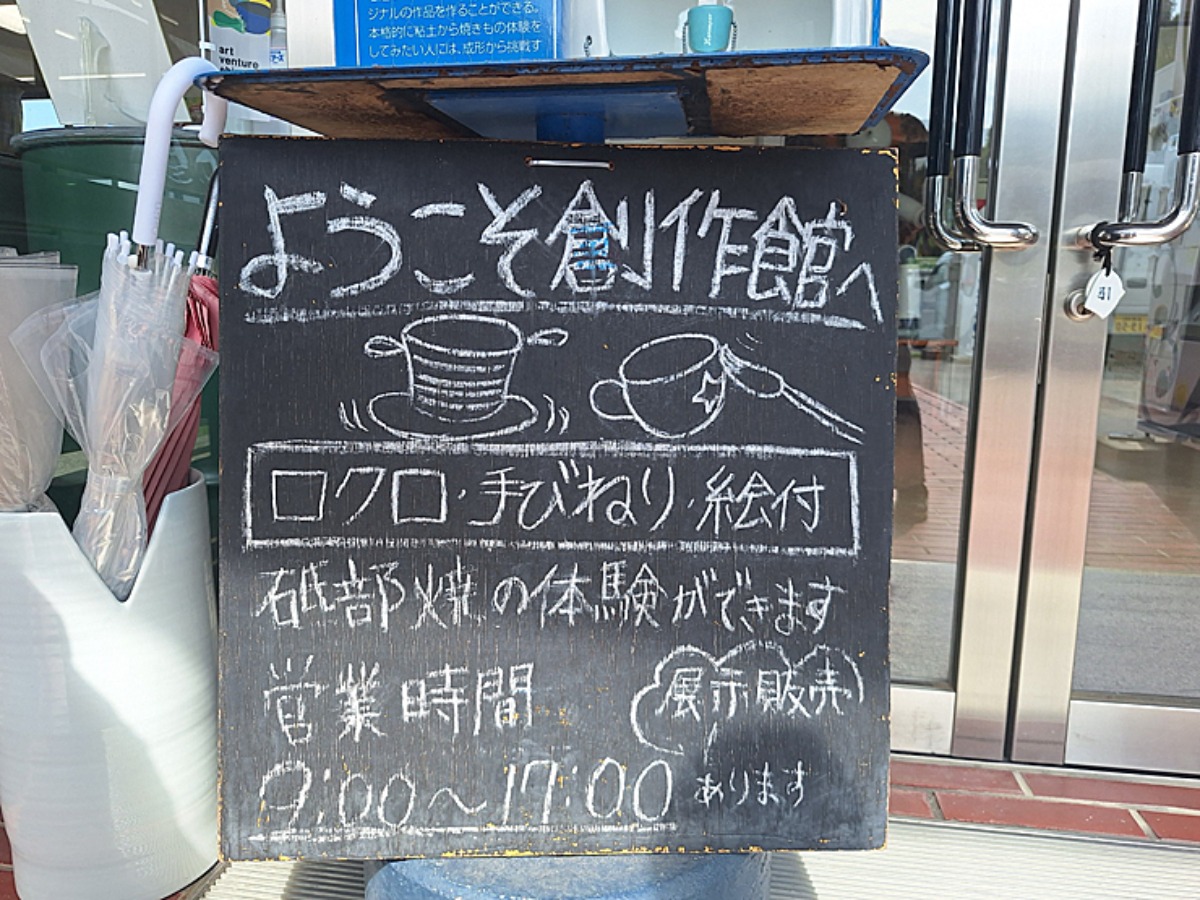 ジナルの作品を作ることができる。
本格的に粘土から焼きもの体験を
してみたい人には、成形から挑戦す
art
venture
ようこそ創作館へ
ロクロ・手びねり・絵付
砥部焼の体験ができます
営業時間
展示販売
9:00～17:00
あります